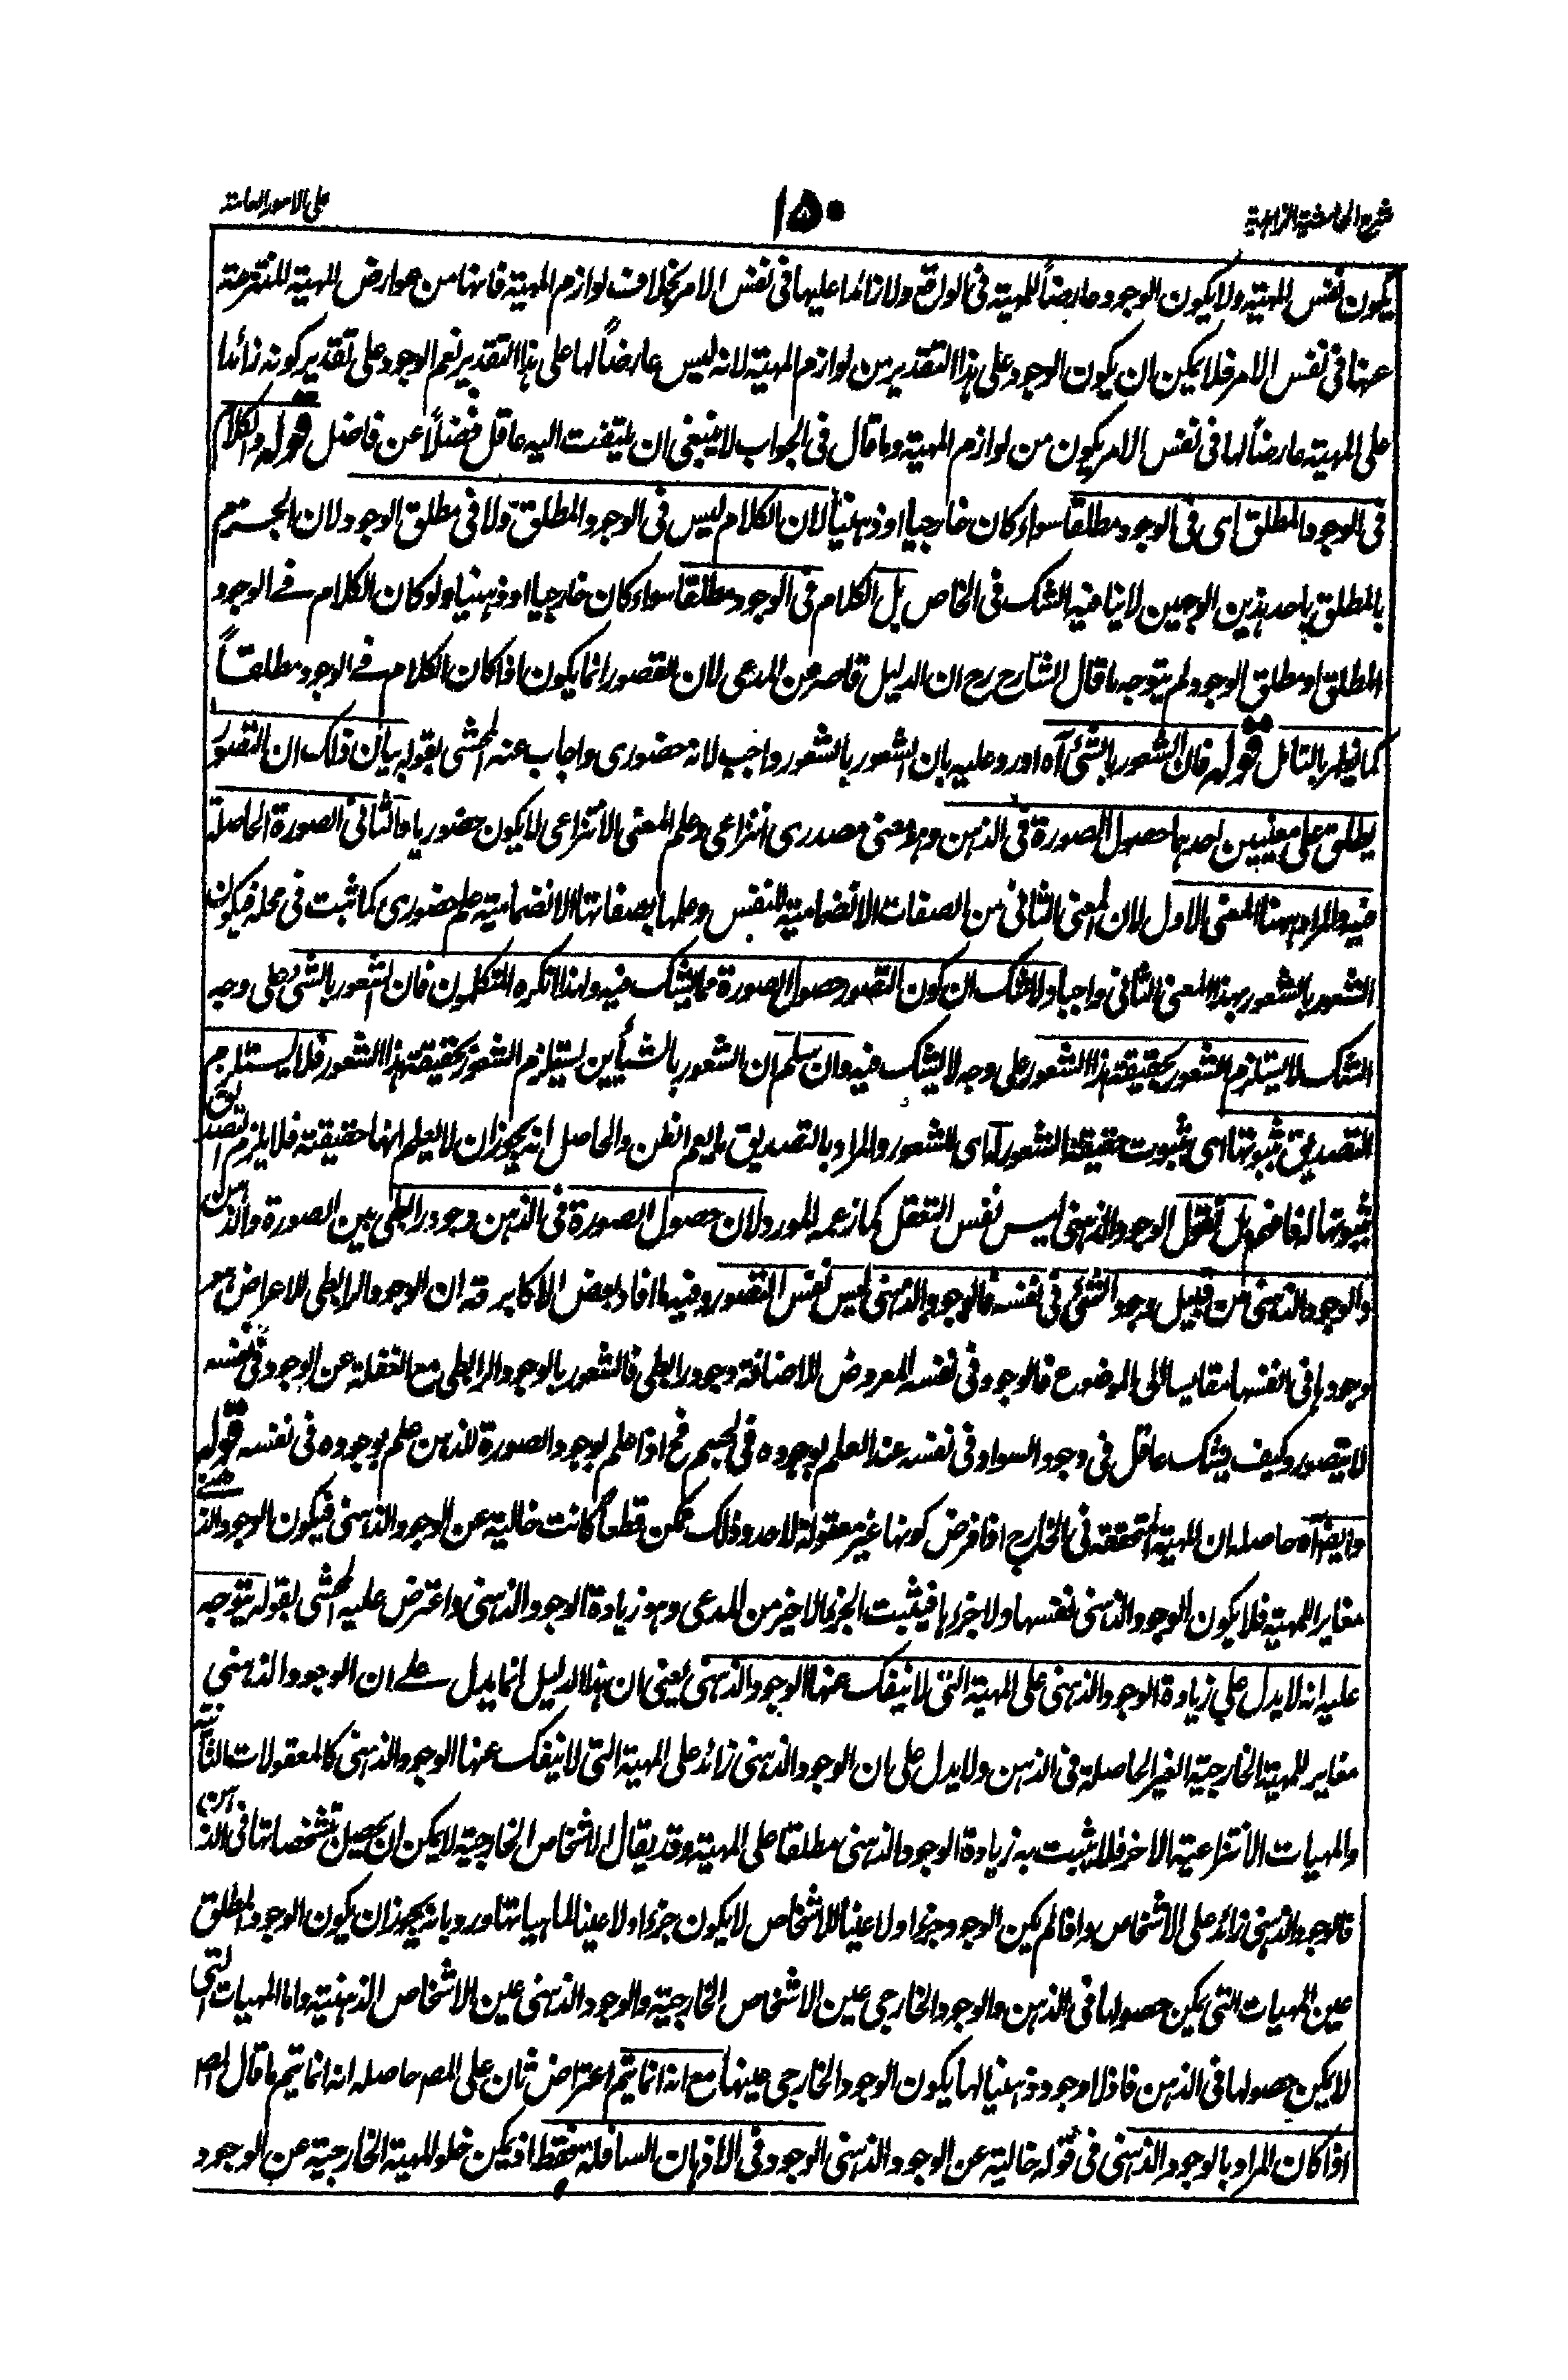 شرح الحاشية الزاهدية
١٥٠
على الامور العامة
يكون نفس المهية ولا يكون الوجود عارضاً للمهية فى الواقع ولا زائدا عليها فى نفس الامر بخلاف لوازم المهية فانها من عوارض المهية المتفرعة
عنها فى نفس الامر فلا يمكن ان يكون الوجود على هذا التقدير من لوازم المهية لانه ليس عارضاً لها على هذا التقدير نعم الوجود على تقدير كونه زائدا
على المهية عارضاً لها فى نفس الامر يكون من لوازم المهية وما قال فى الجواب لا ينبغى ان يلتفت اليه عاقل فضلاً عن فاضل قوله والكلام
فى الوجود المطلق اى فى الوجود مطلقا سواء كان خارجيا او ذهنياً لان الكلام ليس فى الوجود المطلق ولا فى مطلق الوجود لان الجزم
بالمطلق باحد هذين الوجهين لا ينافيه الشك فى الخاص بل الكلام فى الوجود مطلقا سواء كان خارجيا او ذهنيا ولو كان الكلام فى الوجود
المطلق او مطلق الوجود لم يتوجه ما قال الشارح رح ان الدليل قاصر عن المدعى لان القصور انما يكون اذا كان الكلام فى الوجود مطلقاً
كما يظهر بالتامل قوله فان الشعور بالشئ آه اورد عليه بان الشعور بالشعور واجب لانه حضورى واجاب عنه المحشى بقوله بيان ذلك ان التصور
يطلق على معنيين احدهما حصول الصورة فى الذهن وهو معنى مصدرى انتزاعى وعلم المعنى الانتزاعى لا يكون حضوريا والثانى الصورة الحاصلة
فيه والمراد ههنا المعنى الاول لان المعنى الثانى من الصفات الانضمامية للنفس وعلمها بصفاتها الانضمامية علم حضورى كما ثبت فى محله فيكون
الشعور بالشعور بهذا المعنى الثانى واجبا ولا شك ان كون التصور حصول الصورة مما يشك فيه ولذا انكره المتكلمون فان الشعور بالشئ على وجه
الشك لا يستلزم الشعور بحقيقة هذا الشعور على وجه لا يشك فيه وان سلم ان الشعور بالشيئين يستلزم الشعور بحقيقة هذا الشعور فلا يستلزم
التصديق بثبوتها اى بثبوت حقيقة الشعور له اى للشعور والمراد بالتصديق ما يعم الظن والحاصل انه يجوز ان لا يعلم انها حقيقته فلا يلزم التصديق
بثبوتها له فافهم بل نقول الوجود الذهنى ليس نفس التعقل كما زعمه المورد لان حصول الصورة فى الذهن وجود رابطى بين الصورة والذهن
والوجود الذهنى من قبيل وجود الشئ فى نفسه فالوجود الذهنى ليس نفس التصور وفيه ما افاد بعض الاكابر قده ان الوجود الرابطى للاعراض هو
وجودها فى انفسها مقايسا الى الموضوع فالوجود فى نفسه المعروض للاضافة وجود رابطى فالشعور بالوجود الرابطى مع الغفلة عن الوجود فى نفسه
لا يتصور وكيف يشك عاقل فى وجود السواد فى نفسه عند العلم بوجوده فى الجسم فح اذا علم بوجود الصورة للذهن علم بوجوده فى نفسه قوله
وايضا آه حاصله ان المهية المتحققة فى الخارج اذا فرض كونها غير معقولة لاحد وذلك ممكن قطعاً كانت خالية عن الوجود الذهنى فيكون الوجود الذهنى
مغايرا للمهية فلا يكون الوجود الذهنى نفسها ولا جزءها فيثبت الجزء الاخير من المدعى وهو زيادة الوجود الذهنى واعترض عليه المحشى بقوله يتوجه
عليه انه لا يدل على زيادة الوجود الذهنى على المهية التى لا ينفك عنها الوجود الذهنى يعنى ان هذا الدليل انما يدل على ان الوجود الذهنى
مغاير للمهية الخارجية الغير الحاصلة فى الذهن ولا يدل على ان الوجود الذهنى زائد على المهية التى لا ينفك عنها الوجود الذهنى كالمعقولات الثانية
والمهيات الانتزاعية الاخر فلا يثبت به زيادة الوجود الذهنى مطلقا على المهية وقد يقال الاشخاص الخارجية لا يمكن ان يحصل بتشخصاتها فى الذهن
فالوجود الذهنى زائد على الاشخاص واذا لم يكن الوجود جزءا ولا عينا للاشخاص لا يكون جزءا ولا عينا لماهياتها ورد بانه يجوز ان يكون الوجود المطلق
عين المهيات التى يمكن حصولها فى الذهن والوجود الخارجى عين الاشخاص الخارجية والوجود الذهنى عين الاشخاص الذهنية واما المهيات التى
لا يمكن حصولها فى الذهن فاذ لا وجود ذهنيا لها يكون الوجود الخارجى عينها مع انه انما يتم اعتراض ثان على المصـ حاصله انه انما يتم ما قال المصـ
اذا كان المراد بالوجود الذهنى فى قوله خالية عن الوجود الذهنى الوجود فى الاذهان السافلة فقط اذ يمكن خلو المهية الخارجية عن الوجود